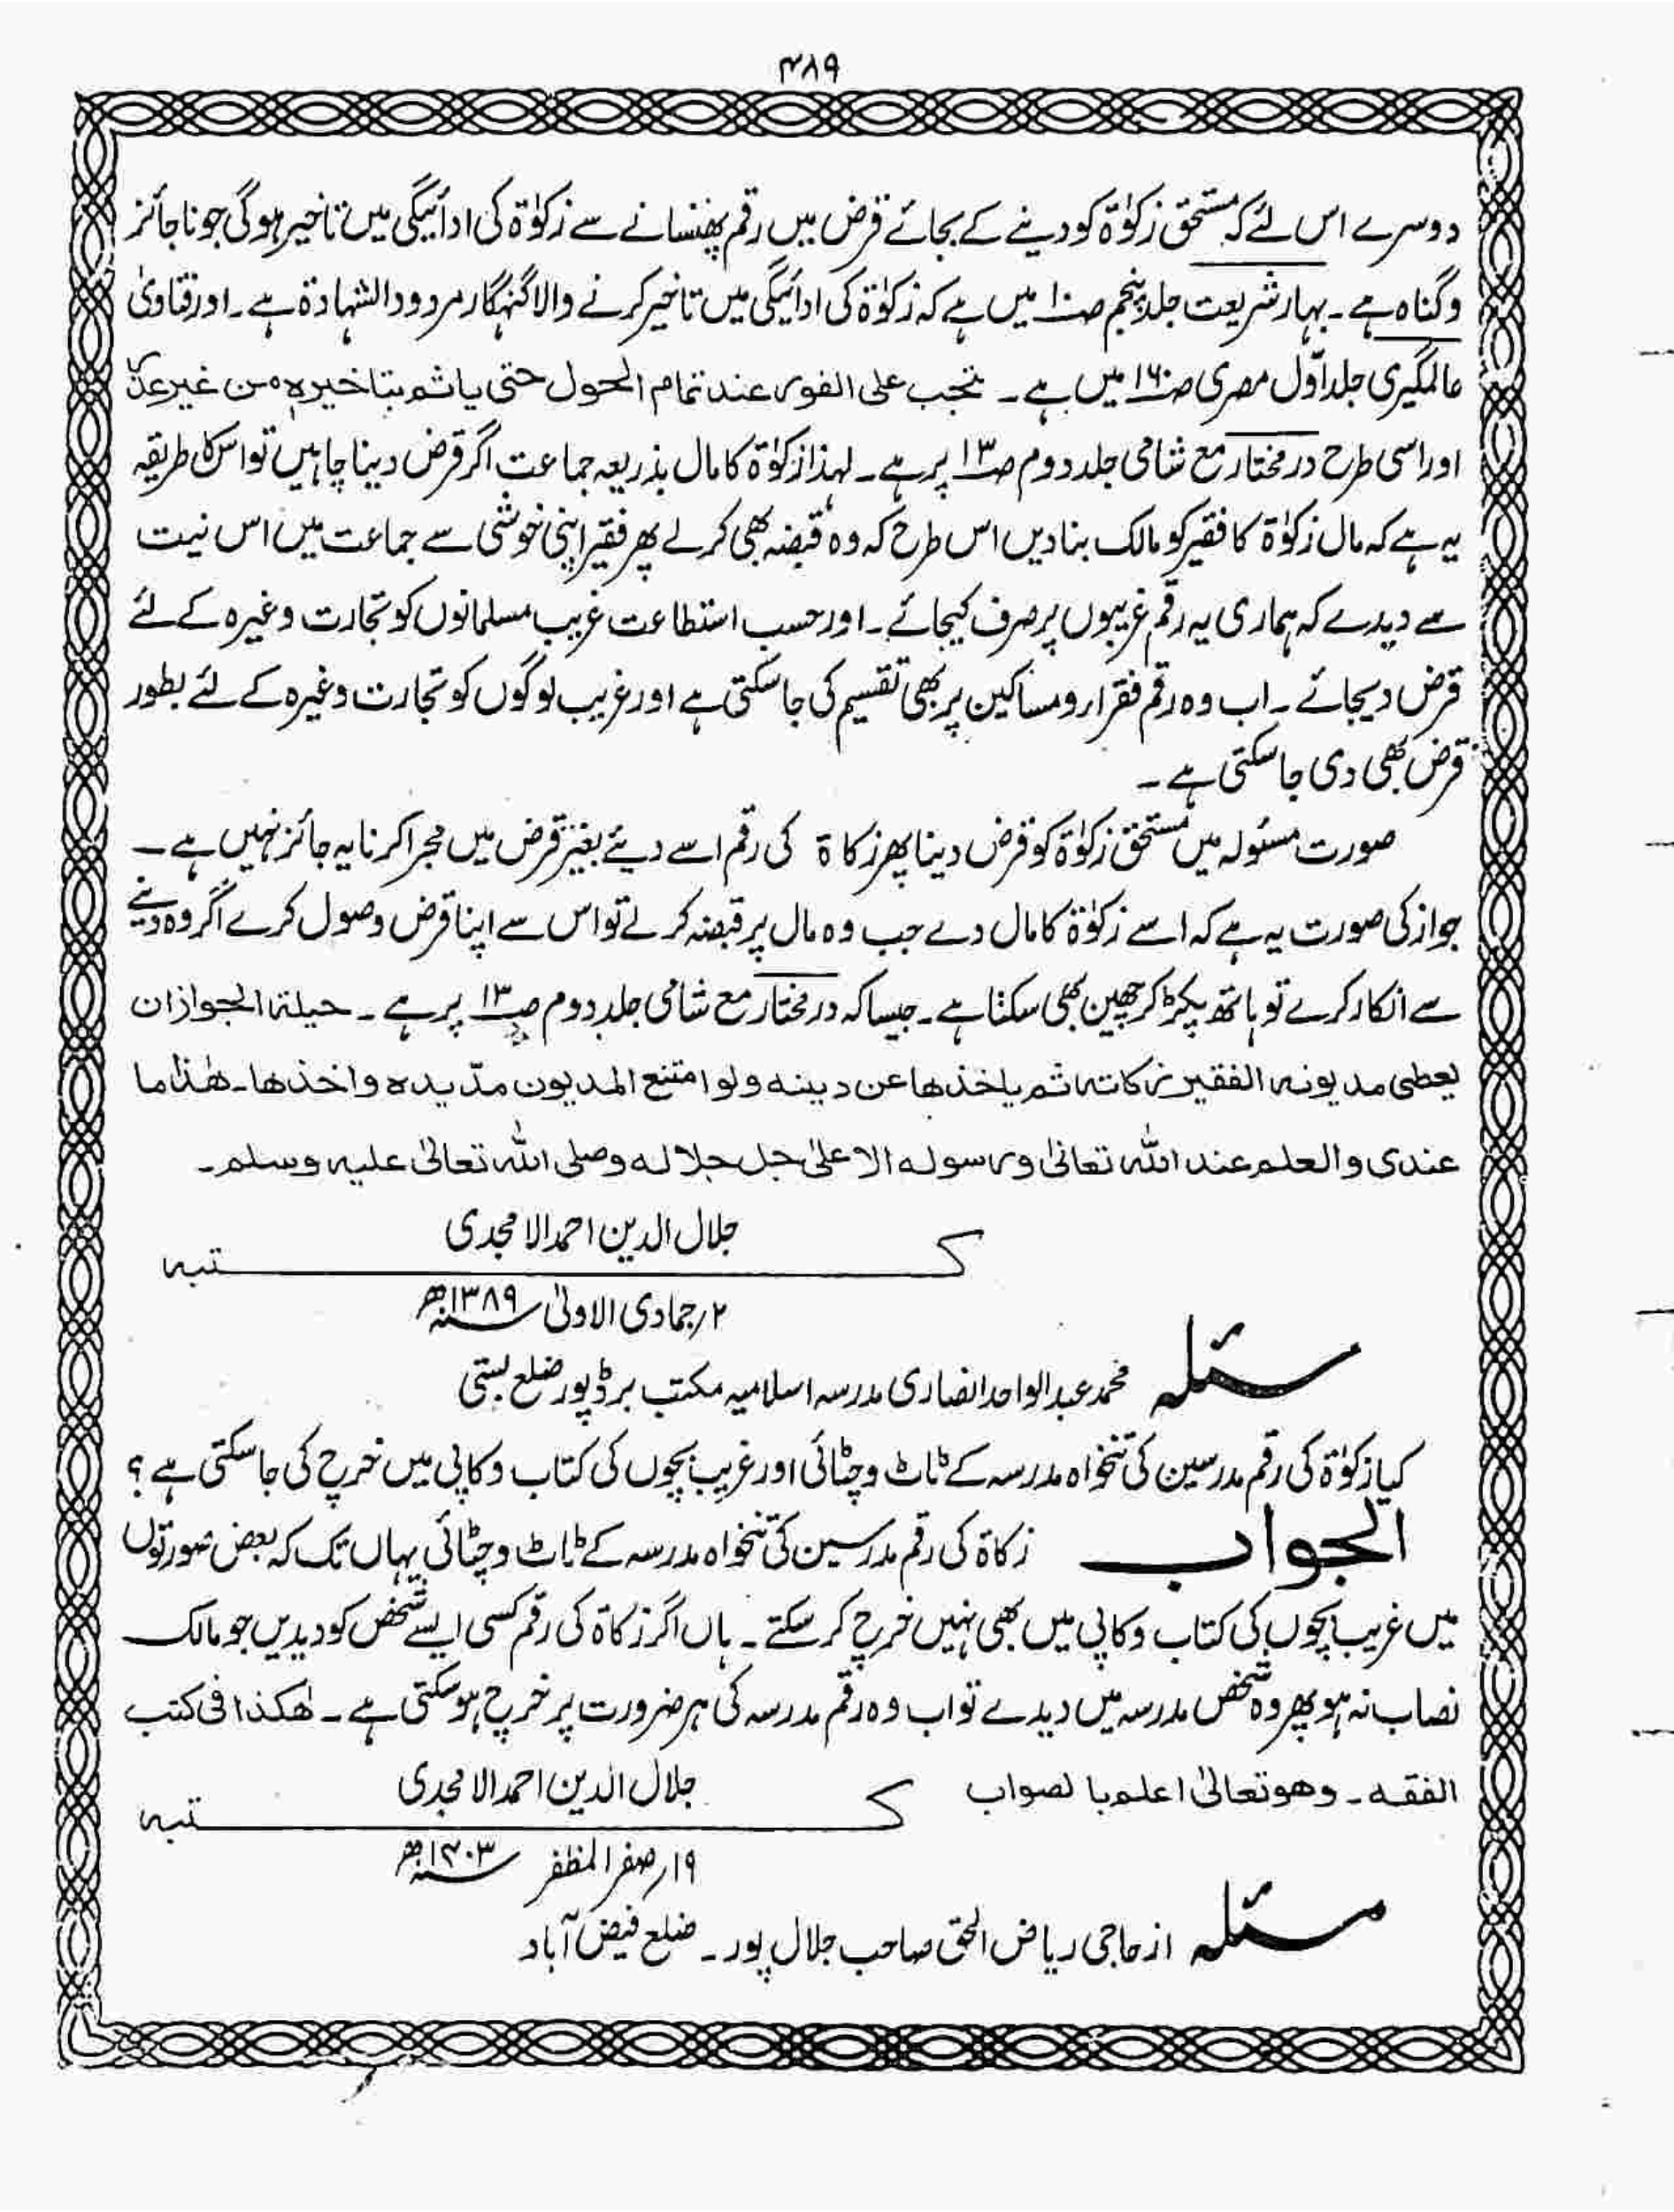 ۴۸۹
دوسرے اس لئے کہ مستحق زکوٰۃ کو دینے کے بجائے قرض میں رقم پھنسانے سے زکوٰۃ کی ادائیگی میں تاخیر ہوگی جو ناجائز
وگناہ ہے۔ بہار شریعت جلد پنجم صـ۱۰ میں ہے کہ زکوٰۃ کی ادائیگی میں تاخیر کرنے والا گنہگار مردود الشہادۃ ہے۔ اور فتاویٰ
عالمگیری جلد اوّل مصری صـ۱۶۰ میں ہے۔ تجب علی الفور عند تمام الحول حتی یاثم بتاخیرہ من غیر عذر
اور اسی طرح درمختار مع شامی جلد دوم صـ۱۳ پر ہے۔ لہذا زکوٰۃ کا مال بذریعہ جماعت اگر قرض دینا چاہیں تو اس کا طریقہ
یہ ہے کہ مال زکوٰۃ کا فقیر کو مالک بنادیں اس طرح کہ وہ قبضہ بھی کر لے پھر فقیر اپنی خوشی سے جماعت میں اس نیت
سے دیدے کہ ہماری یہ رقم غریبوں پر صرف کیجائے۔ اور حسب استطاعت غریب مسلمانوں کو تجارت وغیرہ کے لئے
قرض دیجائے۔ اب وہ رقم فقراء ومساکین پر بھی تقسیم کی جاسکتی ہے اور غریب لوگوں کو تجارت وغیرہ کے لئے بطور
قرض بھی دی جاسکتی ہے۔
صورت مسئولہ میں مستحق زکوٰۃ کو قرض دینا پھر زکاۃ کی رقم اسے دیئے بغیر قرض میں مجرا کرنا یہ جائز نہیں ہے۔
جواز کی صورت یہ ہے کہ اسے زکوٰۃ کا مال دے جب وہ مال پر قبضہ کرلے تو اس سے اپنا قرض وصول کرے اگر وہ دینے
سے انکار کرے تو ہاتھ پکڑ کر چھین بھی سکتا ہے۔ جیسا کہ درمختار مع شامی جلد دوم صـ۱۳ پر ہے۔ حیلۃ الجواز ان
یعطی مدیونہ الفقیر زکاتہ ثم یاخذھا عن دینہ ولو امتنع المدیون مدّ یدہ واخذھا۔ ھٰذا ما
عندی والعلم عند اللہ تعالیٰ ورسولہ الاعلیٰ جل جلالہ وصلی اللہ تعالیٰ علیہ وسلم۔
جلال الدین احمد الامجدی
کتبہ
۲؍ جمادی الاولیٰ سنہ ۱۳۸۹ھ
مسئلہ محمد عبدالواحد انصاری مدرسہ اسلامیہ مکتب برڈپور ضلع بستی
کیا زکوٰۃ کی رقم مدرسین کی تنخواہ مدرسہ کے ٹاٹ وچٹائی اور غریب بچوں کی کتاب وکاپی میں خرچ کی جاسکتی ہے؟
الجواب زکاۃ کی رقم مدرسین کی تنخواہ مدرسہ کے ٹاٹ وچٹائی یہاں تک کہ بعض صورتوں
میں غریب بچوں کی کتاب وکاپی میں بھی نہیں خرچ کر سکتے۔ ہاں اگر زکاۃ کی رقم کسی ایسے شخص کو دیدیں جو مالک
نصاب نہ ہو پھر وہ شخص مدرسہ میں دیدے تو اب وہ رقم مدرسہ کی ہر ضرورت پر خرچ ہوسکتی ہے۔ ھٰکذا فی کتب
الفقہ۔ وھو تعالیٰ اعلم بالصواب
جلال الدین احمد الامجدی
کتبہ
۱۹؍ صفر المظفر سنہ ۱۴۰۳ھ
مسئلہ از حاجی ریاض الحق صاحب جلال پور۔ ضلع فیض آباد